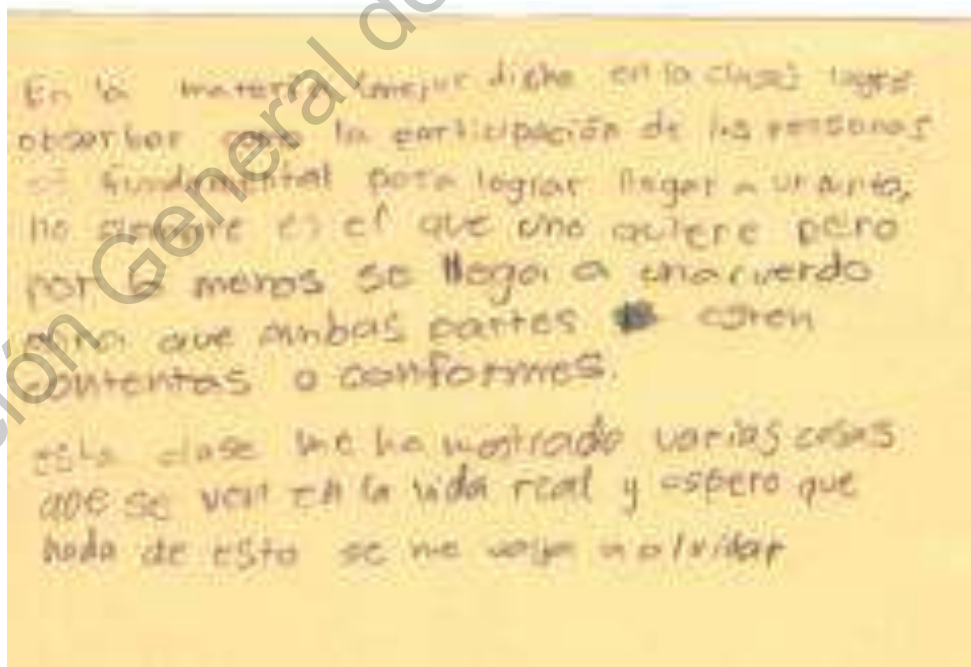 En la materia (mejor dicho en la clase) logre
observar como la participación de las personas
es fundamental para lograr llegar a un punto,
no siempre es el que uno quiere pero
por lo menos se llega a un acuerdo
para que ambas partes esten
contentas o conformes.
esta clase me ha mostrado varias cosas
que se ven en la vida real y espero que
nada de esto se me vaya a olvidar
ción General de